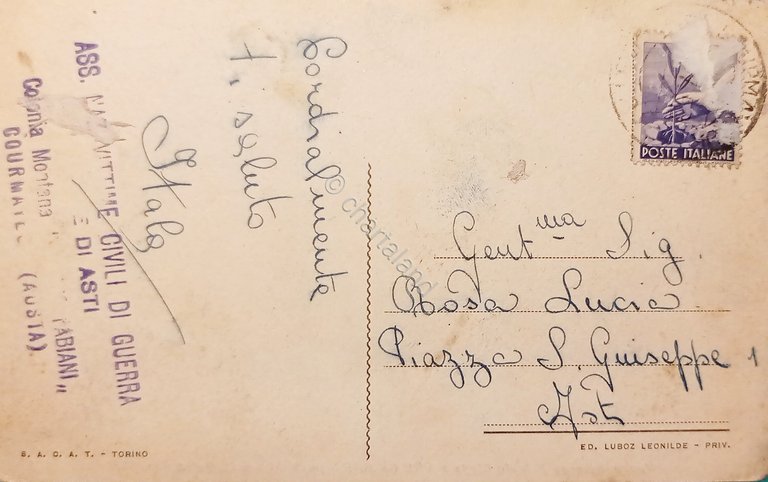 Cordialmente
ti saluto
Italo
ASS. NAZ. VITTIME CIVILI DI GUERRA
E DI ASTI
Colonia Montana FABIANI "
COURMAYEUR (AOSTA)
POSTE ITALIANE
Gent.ma Sig.
Rosa Lucia
Piazza S. Guiseppe 1
Asti
S. A. C. A. T. - TORINO
ED. LUBOZ LEONILDE - PRIV.
© chartaland